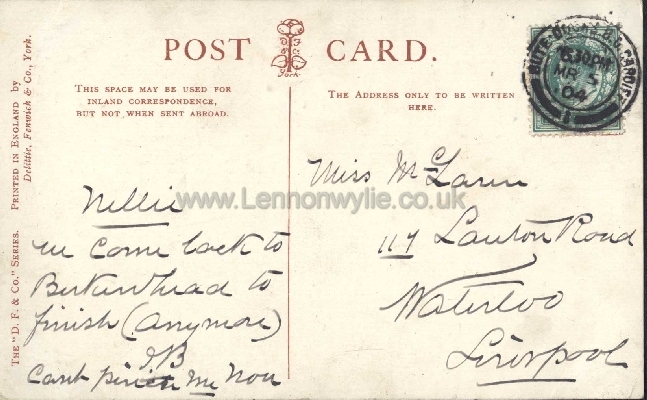 POST CARD.
D F & C
York
THIS SPACE MAY BE USED FOR
INLAND CORRESPONDENCE,
BUT NOT WHEN SENT ABROAD.
THE ADDRESS ONLY TO BE WRITTEN
HERE.
BUTE-DOCKS B.O. CARDIFF
5.30 PM
MR 5
04
1
PRINTED IN ENGLAND by
Delittle, Fenwick & Co., York.
THE "D. F. & Co." SERIES.
www.Lennonwylie.co.uk
Nellie
we come back to
Birkenhead to
finish (anymore)
J B
Cant me now
Miss McLaren
117 Lawton Road
Waterloo
Liverpool